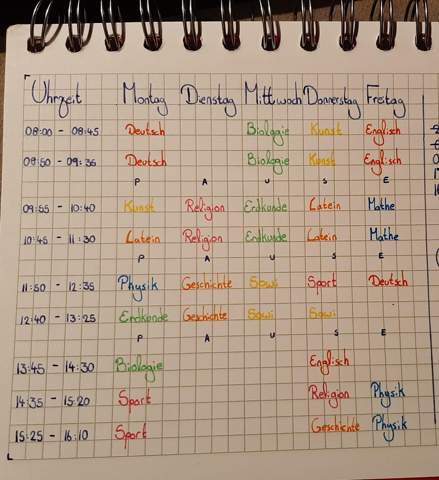 Uhrzeit Montag Dienstag Mittwoch Donnerstag Freitag
08:00 - 08:45 Deutsch Biologie Kunst Englisch
08:50 - 09:35 Deutsch Biologie Kunst Englisch
P A U S E
09:55 - 10:40 Kunst Religion Erdkunde Latein Mathe
10:45 - 11:30 Latein Religion Erdkunde Latein Mathe
P A U S E
11:50 - 12:35 Physik Geschichte Sowi Sport Deutsch
12:40 - 13:25 Erdkunde Geschichte Sowi Sowi
P A U S E
13:45 - 14:30 Biologie Englisch
14:35 - 15:20 Sport Religion Physik
15:25 - 16:10 Sport Geschichte Physik